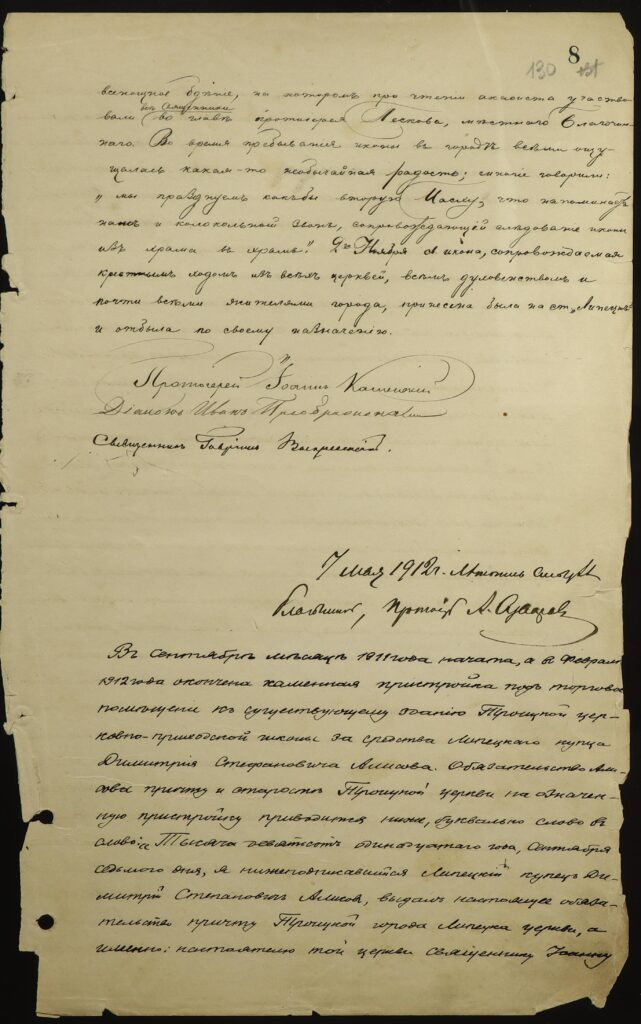 8
130 131
всенощное бдѣніе, на которомъ при чтеніи акаѳиста участво-
вали всѣ священники во главѣ протоіерея Лескова, мѣстнаго благочин-
наго. Во время пребыванія иконы въ городѣ всѣми ощу-
щалась какая-то необычайная радость; многіе говорили:
„мы празднуемъ какъ бы вторую Пасху, что напоминаетъ
намъ и колокольный звонъ, сопровождающій слѣдованіе иконы
изъ храма въ храмъ". 9го Ноября св. икона, сопровождаемая
крестнымъ ходомъ изъ всѣхъ церквей, всѣмъ духовенствомъ и
почти всѣми жителями города, принесена была на ст. „Липецкъ"
и отбыла по своему назначенію.
Протоіерей Іоаннъ
Діаконъ Иванъ Преображенскій
Священникъ Гавріилъ Воскресенскій.
7 мая 1912 г. Лѣтопись
Благочинный, Протоіерей А.
Въ Сентябрѣ мѣсяцѣ 1911 года начата, а въ Февралѣ
1912 года окончена каменная пристройка подъ торговое
помѣщеніе къ существующему зданію Троицкой цер-
ковно-приходской школы за средства Липецкаго купца
Димитрія Стефановича Алисова. Обязательство Али-
сова причту и старостѣ Троицкой церкви на означен-
ную пристройку приводится ниже, буквально слово въ
слово: „Тысяча девятсотъ одинадцатаго года, Сентября
седьмого дня, я нижеподписавшійся Липецкій купецъ Ди-
митрій Степановъ Алисовъ, выдалъ настоящее обяза-
тельство причту Троицкой города Липецка церкви, а
именно: настоятелю той церкви священнику Іоанну